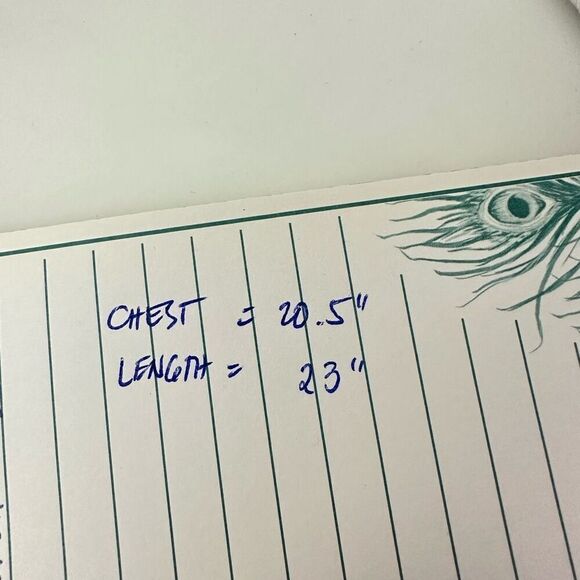 CHEST = 20.5"
LENGTH = 23"